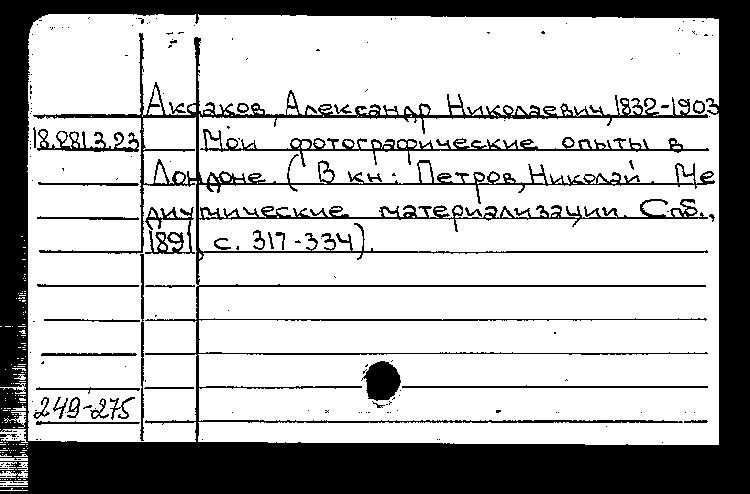 Аксаков, Александр Николаевич, 1832-1903
18.281.3.23 Мои фотографические опыты в
Лондоне. ( В кн: Петров, Николай. Ме
диумические материализации. Спб.,
1891, с. 317-334).
249-275